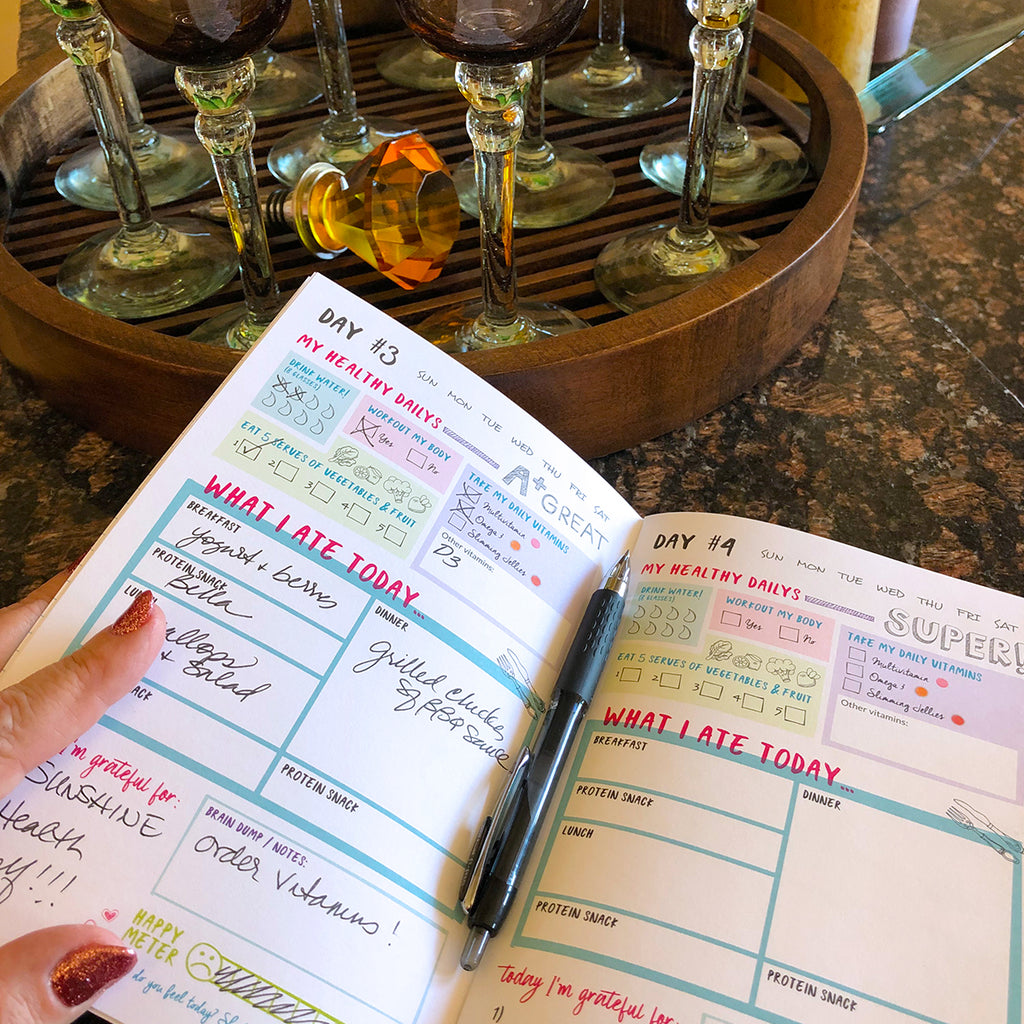 DAY #3
SUN MON TUE WED THU FRI SAT
MY HEALTHY DAILYS
A+ GREAT
DRINK WATER!
(8 GLASSES)
WORKOUT MY BODY
Yes No
EAT 5 SERVES OF VEGETABLES & FRUIT
1 2 3 4 5
TAKE MY DAILY VITAMINS
Multivitamin
Omega 3
Slimming Jellies
Other vitamins:
D3
WHAT I ATE TODAY...
BREAKFAST
yogurt + berrys
PROTEIN SNACK
Bella
LUNCH
& Salad
DINNER
Grilled Chicken
BBQ Sauce
PROTEIN SNACK
I'm grateful for:
SUNSHINE
Health
BRAIN DUMP / NOTES:
order vitamins!
HAPPY
METER
do you feel today?
DAY #4
SUN MON TUE WED THU FRI SAT
MY HEALTHY DAILYS
SUPER!
DRINK WATER!
(8 GLASSES)
WORKOUT MY BODY
Yes No
EAT 5 SERVES OF VEGETABLES & FRUIT
1 2 3 4 5
TAKE MY DAILY VITAMINS
Multivitamin
Omega 3
Slimming Jellies
Other vitamins:
WHAT I ATE TODAY...
BREAKFAST
PROTEIN SNACK
LUNCH
PROTEIN SNACK
DINNER
PROTEIN SNACK
today I'm grateful for:
1)